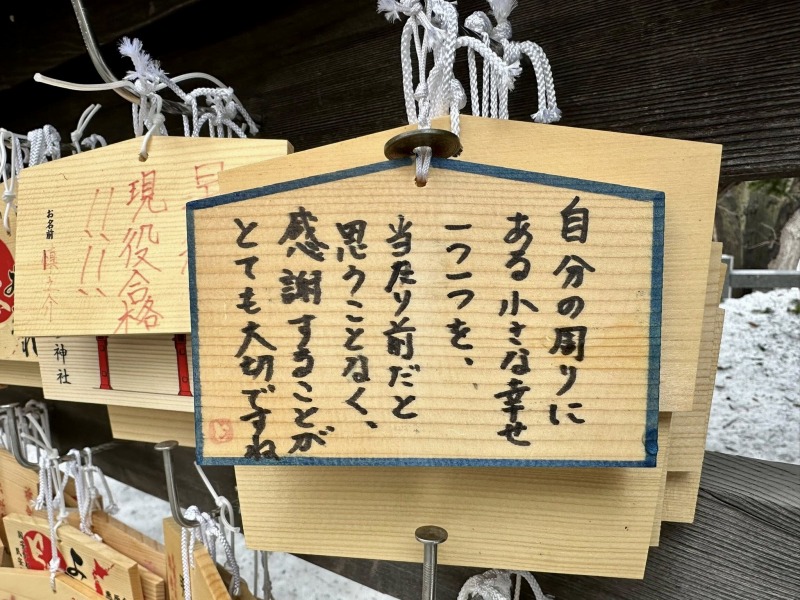 自分の周りに
ある小さな幸せ
一つ一つを、
当たり前だと
思うことなく、
感謝することが
とても大切ですね
現役合格
!!!!
お名前
慎之介
神社